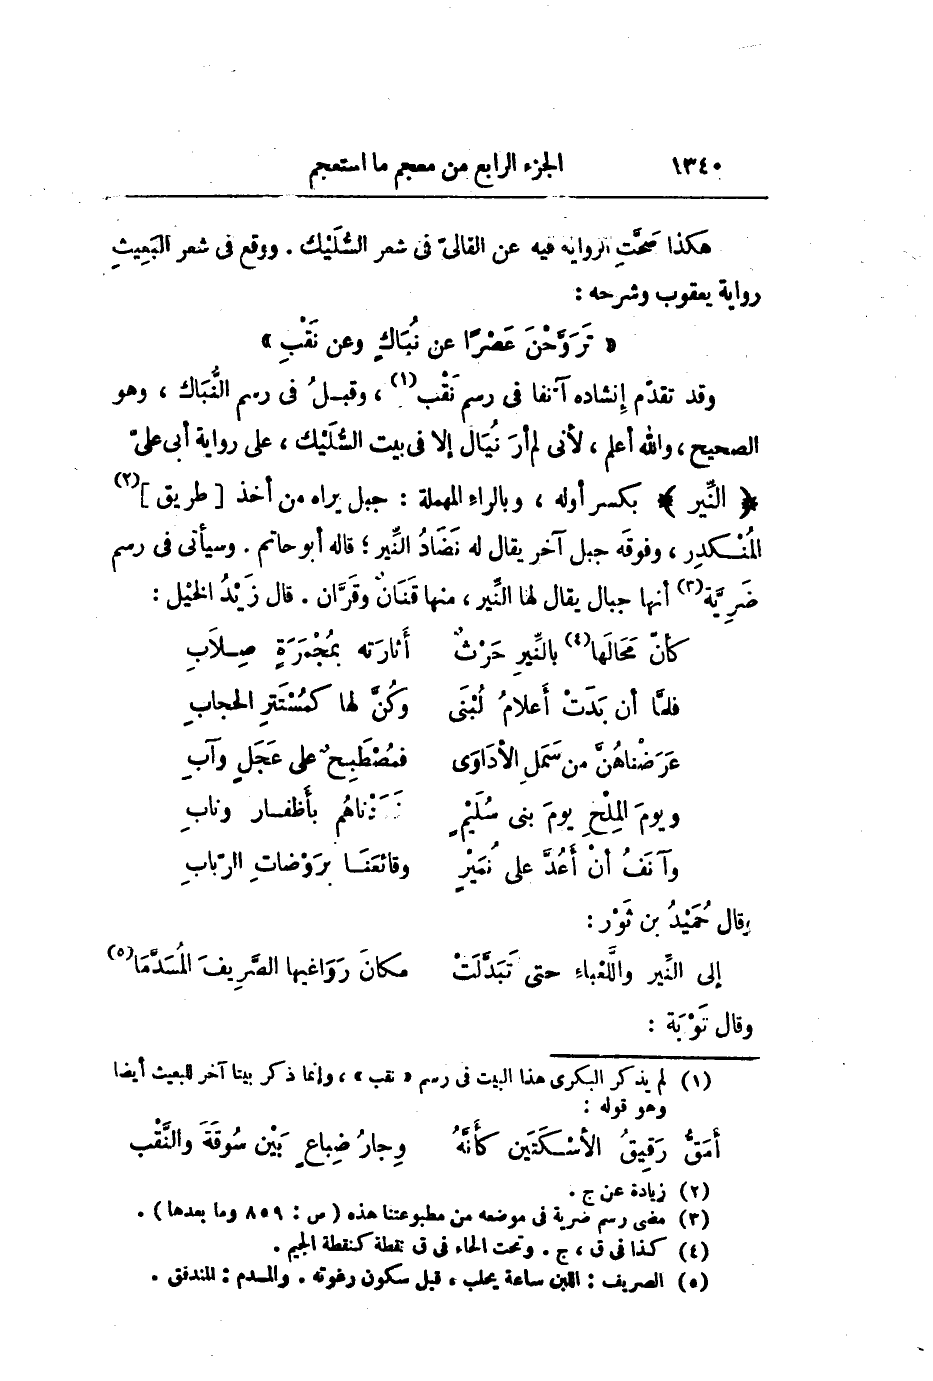 ١٣٤٠ الجزء الرابع من معجم ما استعجم
هكذا صحَّتِ الرواية فيه عن القالىّ فى شعر السُّلَيْك . ووقع فى شعر البَعِيثِ
رواية يعقوب وشرحه :
« تَرَوَّحْنَ عَصْرًا عن نُبَاكٍ وعن نَقْبِ »
وقد تقدّم إنشاده آنفا فى رسم نَقْب(١) ، وقبلُ فى رسم النُّبَاك ، وهو
الصحيح ، والله أعلم ، لأنى لم أرَ نُيَال إلا فى بيت السُّلَيْك ، على رواية أبى علىّ
﴿ النِّير ﴾ بكسر أوله ، وبالراء المهملة : جبل يراه من أخذ [ طريق ](٢)
المُنْكدِر ، وفوقه جبل آخر يقال له نَضَادُ النِّير ؛ قاله أبو حاتم . وسيأتى فى رسم
ضَرِيَّة(٣) أنها جبال يقال لها النِّير ، منها قَنَان وقَرَّان . قال زَيْدُ الخيْل :
كأنّ مَحَالَها(٤) بالنِّيرِ حَرْثٌ أثارَته بمُجْمَرَةٍ صِلاَبِ
فلمَّا أن بَدَتْ أَعلامُ لُبْنَى وكُنَّ لها كمُسْتَترِ الحجابِ
عَرَضْناهُنَّ من سَمَلِ الأدَاوَى فمُصْطَبِحٌ على عَجَلٍ وآبِ
ويومَ المِلْحِ يومَ بنى سُلَيْمٍ بأَظفار ونابِ
وآنَفُ أنْ أَعُدَّ على نُمَيْرٍ وقائعَنَا برَوْضاتِ الرّبابِ
وقال حُمَيْدُ بن ثَوْر :
إلى النِّير واللَّعْباءِ حتى تَبَدَّلَتْ مكانَ رَوَاغيها الصَّرِيفَ المُسَدَّمَا(٥)
وقال تَوْبَة :
(١) لم يذكر البكرى هذا البيت فى رسم « نقب » ، وإنما ذكر بيتا آخر للبعيث أيضا
وهو قوله :
أَمَقُّ رَقِيقُ الأسْكَتَين كأنَّهُ وِجارُ ضِباعٍ بَيْن سُوقَةَ والنَّقْب
(٢) زيادة عن ج .
(٣) مضى رسم ضرية فى موضعه من مطبوعتنا هذه ( ص : ٨٥٩ وما بعدها ) .
(٤) كذا فى ق ، ج . وتحت الحاء فى ق نقطة كنقطة الجيم .
(٥) الصريف : اللبن ساعة يحلب ، قبل سكون رغوته . والمسدم : المتدفق .